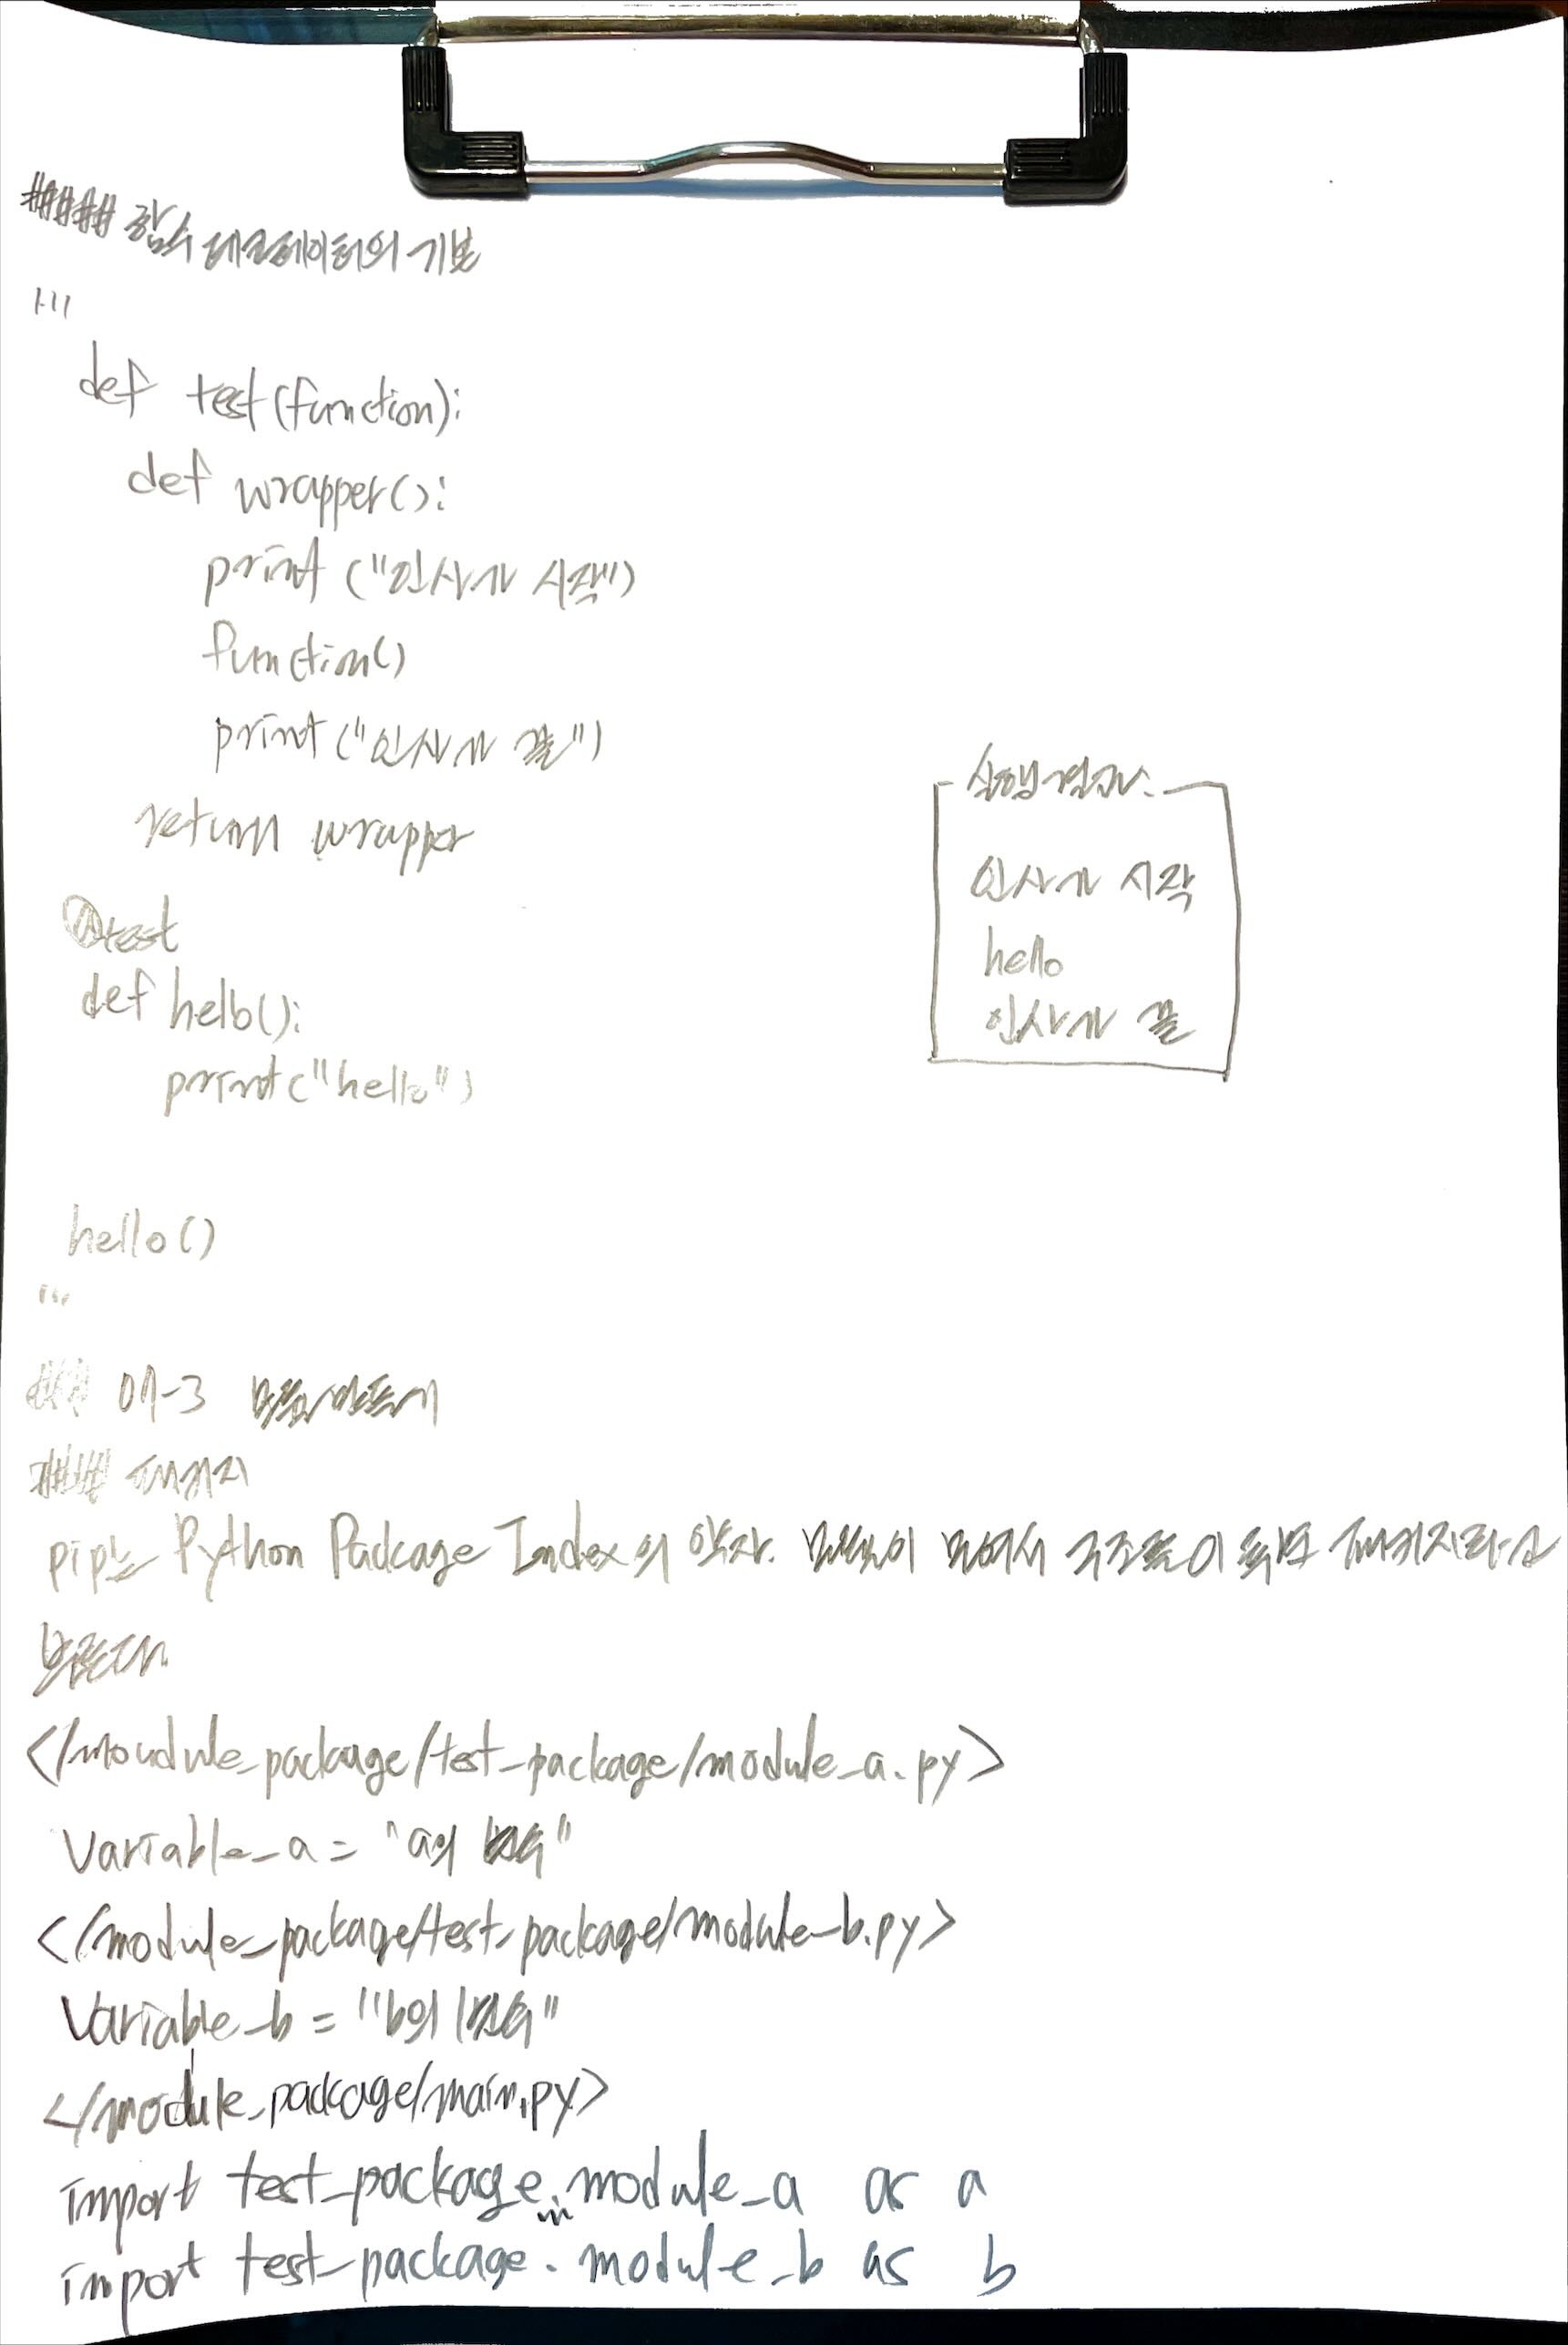 ##### 함수 데코레이터의 기본
'''
def test(function):
def wrapper():
print ("인사가 시작")
function()
print("인사가 끝")
return wrapper
@test
def hello():
print("hello")
hello()
'''
실행결과:
인사가 시작
hello
인사가 끝
### 07-3 모듈만들기
#### 패키지
pip는 Python Package Index의 약자. 모듈이 모여서 구조를 이루면 패키지라고
부른다.
</moudule_package/test_package/module_a.py>
Variable_a = "a의 변수"
</module_package/test_package/module_b.py>
Variable_b = "b의 변수"
</module_package/main.py>
import test_package.module_a as a
import test_package.module_b as b